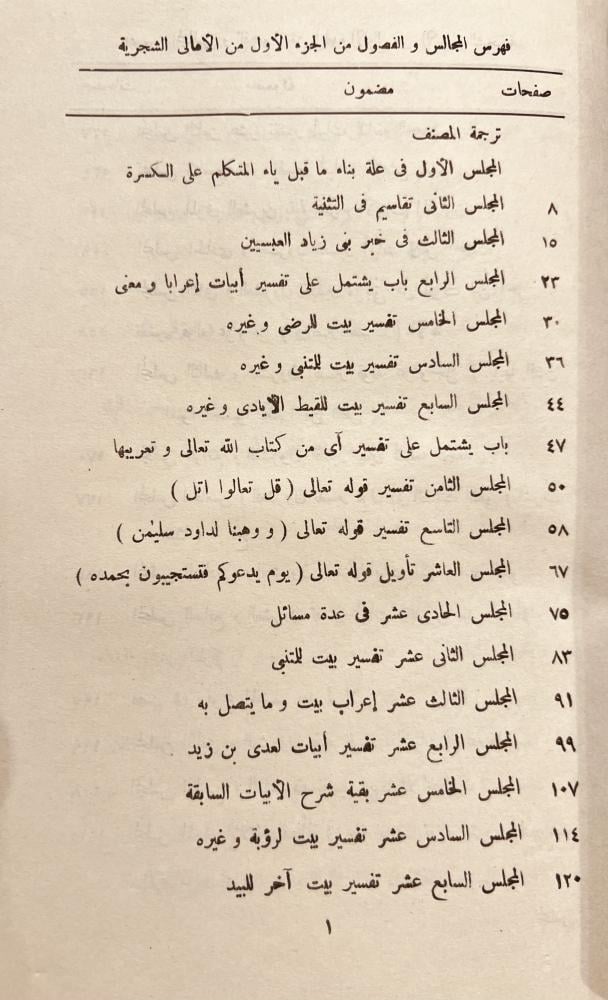 فهرس المجالس و الفصول من الجزء الاول من الامالى الشجرية
صفحات مضمون
ترجمة المصنف
المجلس الاول فى علة بناء ما قبل ياء المتكلم على الكسرة
٨ المجلس الثانى تقاسيم فى التثنية
١٥ المجلس الثالث فى خبر بنى زياد العبسيين
٢٣ المجلس الرابع باب يشتمل على تفسير أبيات إعرابا و معنى
٣٠ المجلس الخامس تفسير بيت للرضى و غيره
٣٦ المجلس السادس تفسير بيت للمتنبى و غيره
٤٤ المجلس السابع تفسير بيت للقيط الايادى و غيره
٤٧ باب يشتمل على تفسير آى من كتاب الله تعالى و تعريبها
٥٠ المجلس الثامن تفسير قوله تعالى ( قل تعالوا اتل )
٥٨ المجلس التاسع تفسير قوله تعالى ( و وهبنا لداود سليمٰن )
٦٧ المجلس العاشر تأويل قوله تعالى ( يوم يدعوكم فتستجيبون بحمده )
٧٥ المجلس الحادى عشر فى عدة مسائل
٨٣ المجلس الثانى عشر تفسير بيت للمتنبى
٩١ المجلس الثالث عشر إعراب بيت و ما يتصل به
٩٩ المجلس الرابع عشر تفسير أبيات لعدى بن زيد
١٠٧ المجلس الخامس عشر بقية شرح الابيات السابقة
١١٤ المجلس السادس عشر تفسير بيت لرؤبة و غيره
١٢٠ المجلس السابع عشر تفسير بيت آخر للبيد
١